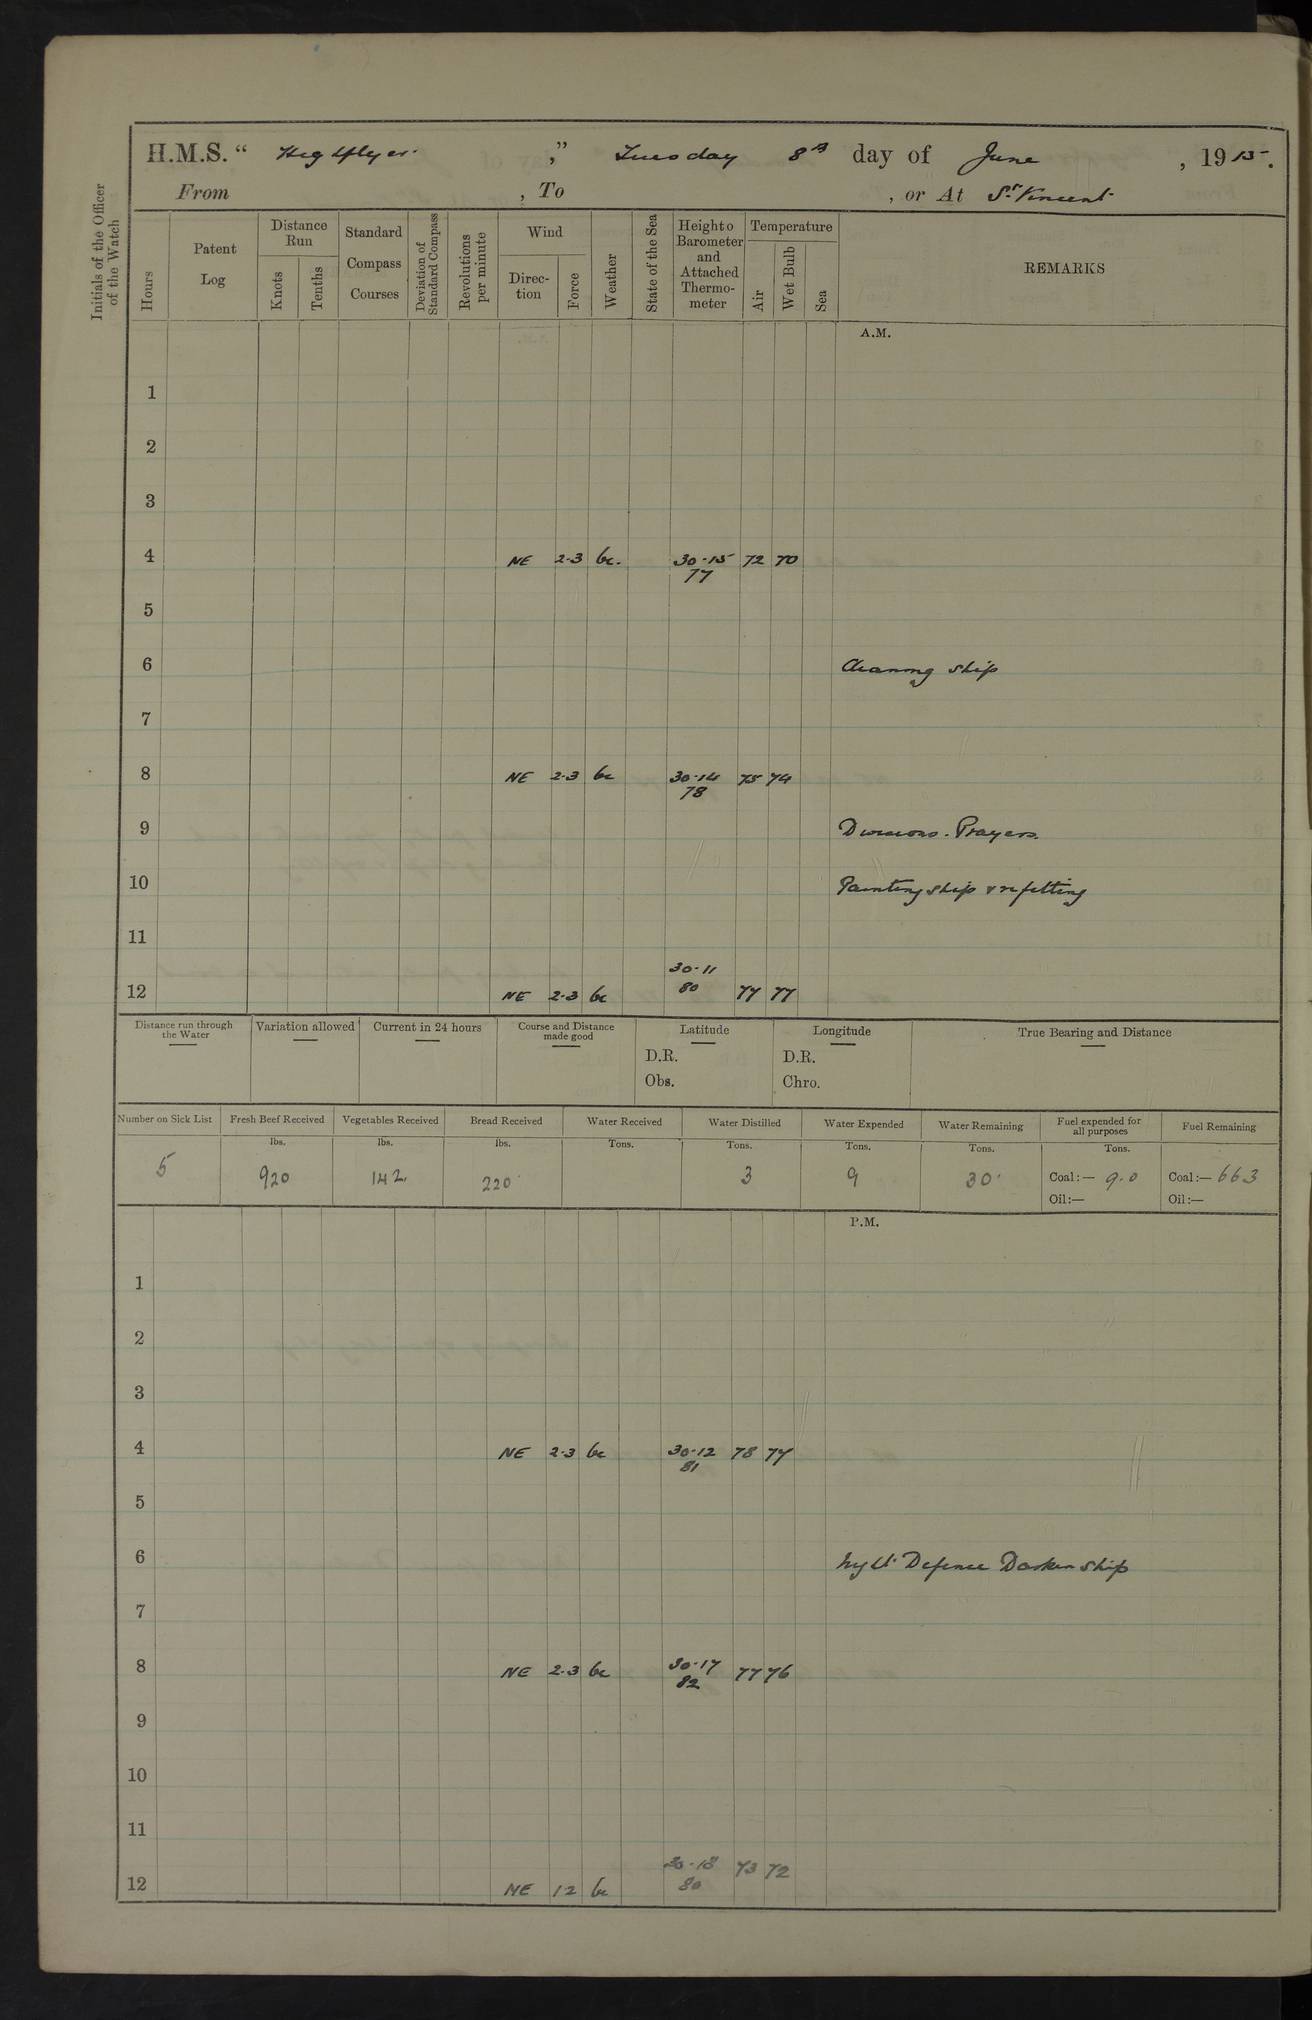 H.M.S. “ Highflyer ,” Tuesday 8th day of June , 1915.
From , To , or At St Vincent
Initials of the Officer of the Watch
Hours
Patent Log
Distance Run
Knots
Tenths
Standard Compass Courses
Deviation of Standard Compass
Revolutions per minute
Wind
Direc-tion
Force
Weather
State of the Sea
Height o Barometer and Attached Thermo-meter
Temperature
Air
Wet Bulb
Sea
REMARKS
A.M.
1
2
3
4 NE 2-3 bc. 30-15 72 70
77
5
6 Cleaning ship
7
8 NE 2-3 bc 30-14 75 74
78
9 Divisions. Prayers.
10 Painting ship & refitting
11
30-11
12 NE 2-3 bc 80 77 77
Distance run through the Water
Variation allowed
Current in 24 hours
Course and Distance made good
Latitude
D.R.
Obs.
Longitude
D.R.
Chro.
True Bearing and Distance
Number on Sick List
Fresh Beef Received
Vegetables Received
Bread Received
Water Received
Water Distilled
Water Expended
Water Remaining
Fuel expended for all purposes
Fuel Remaining
lbs. lbs. lbs. Tons. Tons. Tons. Tons. Tons.
5 920 142 220 3 9 30 Coal:— 9.0 Coal:— 663
Oil:— Oil:—
P.M.
1
2
3
4 NE 2-3 bc 30-12 78 77
81
5
6 Night Defence Darken Ship
7
8 NE 2-3 bc 30-17 77 76
82
9
10
11
30-18 73 72
12 NE 12 bc 80